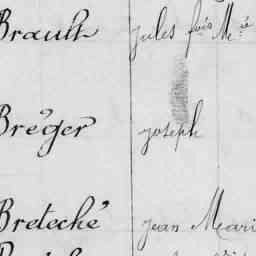 Brault Jules fois Mie
Bréger Joseph
Breteché Jean Mari